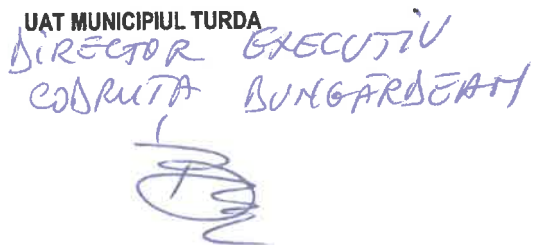 UAT MUNICIPIUL TURDA
DIRECTOR EXECUTIV
CODRUTA BUNGĂRDEAN